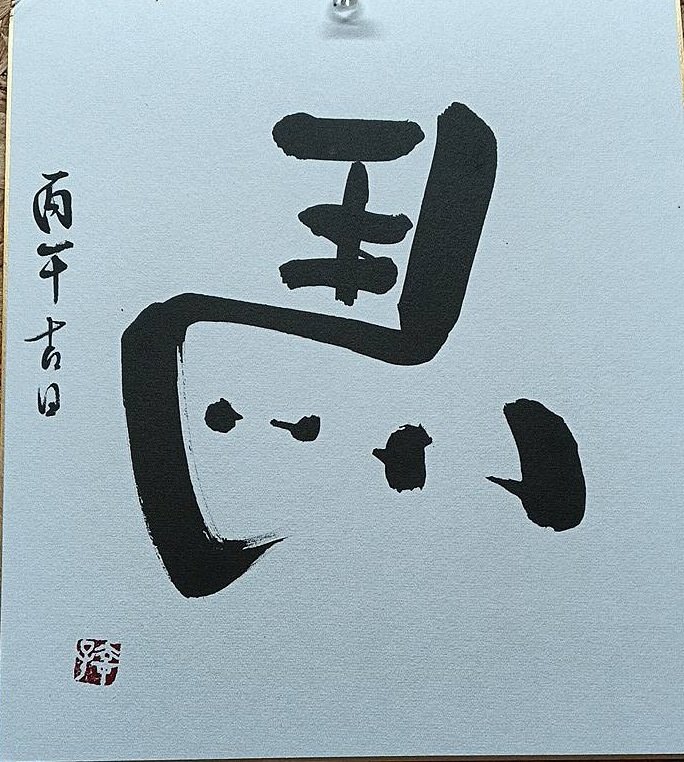 馬
丙午吉日